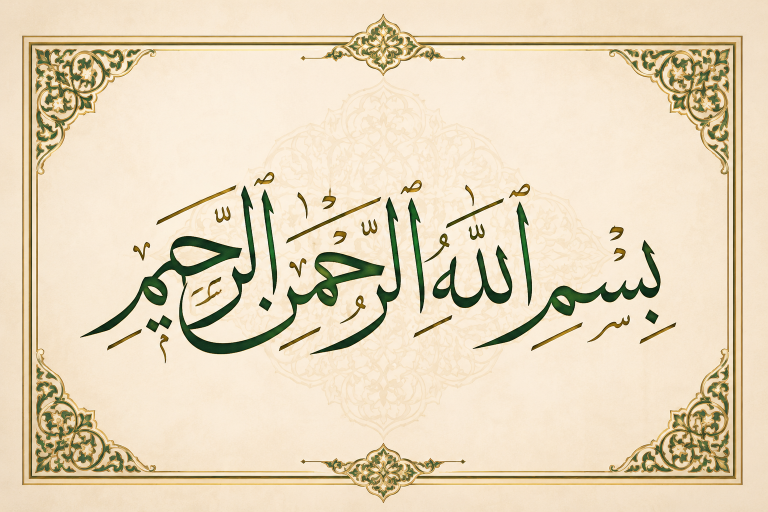 بِسْمِ ٱللَّهِ ٱلرَّحُمٰنِ ٱلرَّحِيمِ